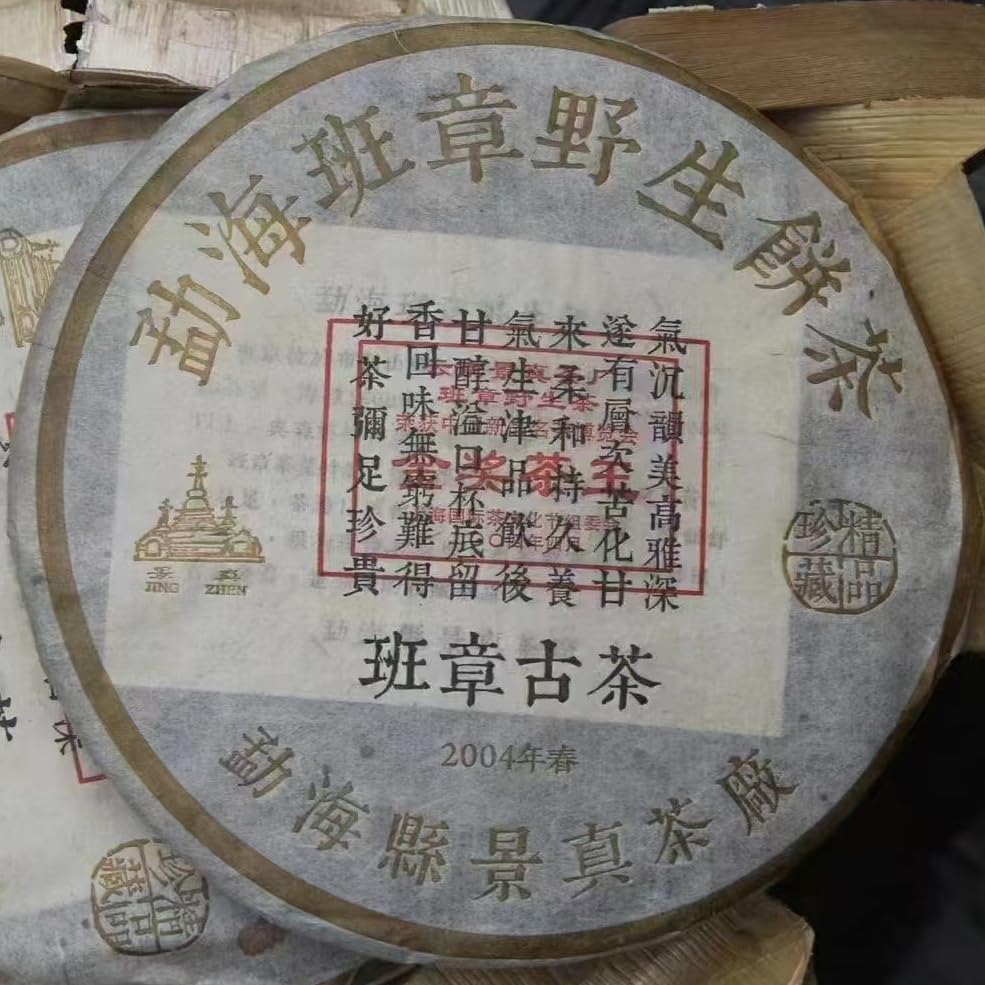 勐海班章野生餅茶
氣沉韻美高雅深
遂有層次苦化甘
来柔和持久養
氣生津品飲後
甘醇溢口杯底留
香回味無窮難得
好茶彌足珍貴
班章野生茶
金奖茶王
景真
JING ZHEN
精品珍藏
班章古茶
2004年春
勐海縣景真茶廠